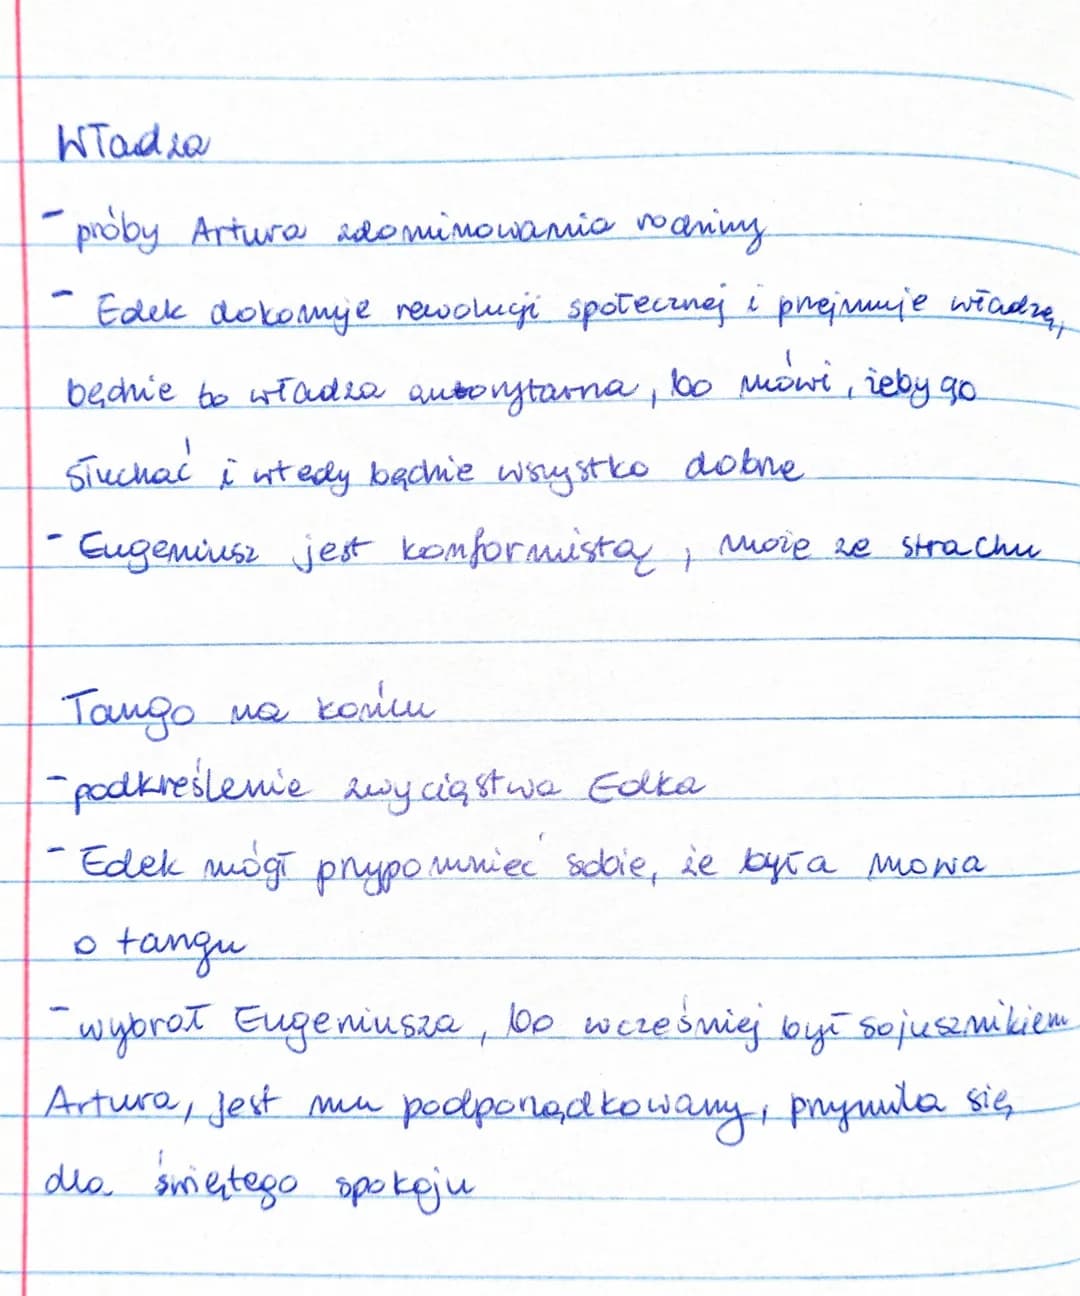 Władza
- próby Artura zdominowania rodziny
- Edek dokonuje rewolucji społecznej i przejmuje władzę,
będzie to władza autorytarna, bo mówi, żeby go
słuchać i wtedy będzie wszystko dobrze
- Eugeniusz jest konformistą, może ze strachu
Tango na końcu
- podkreślenie zwycięstwa Edka
- Edek mógł przypomnieć sobie, że była mowa
o tangu
- wybrał Eugeniusza, bo wcześniej był sojusznikiem
Artura, jest mu podporządkowany, przymila się
dla świętego spokoju